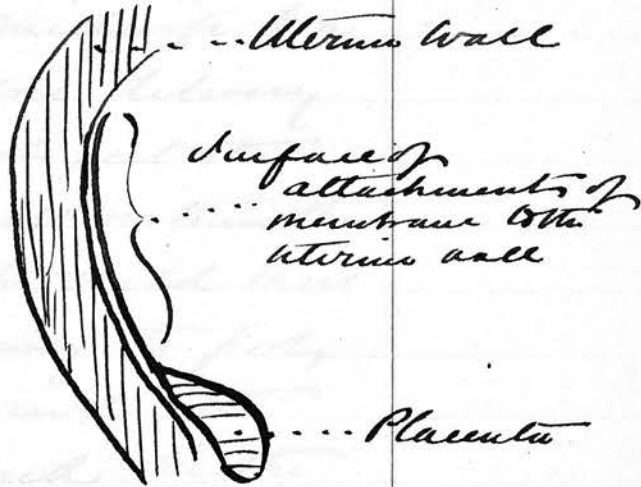 Uterine Wall
Surface of
attachments of
membrane to the
uterine wall
Placenta